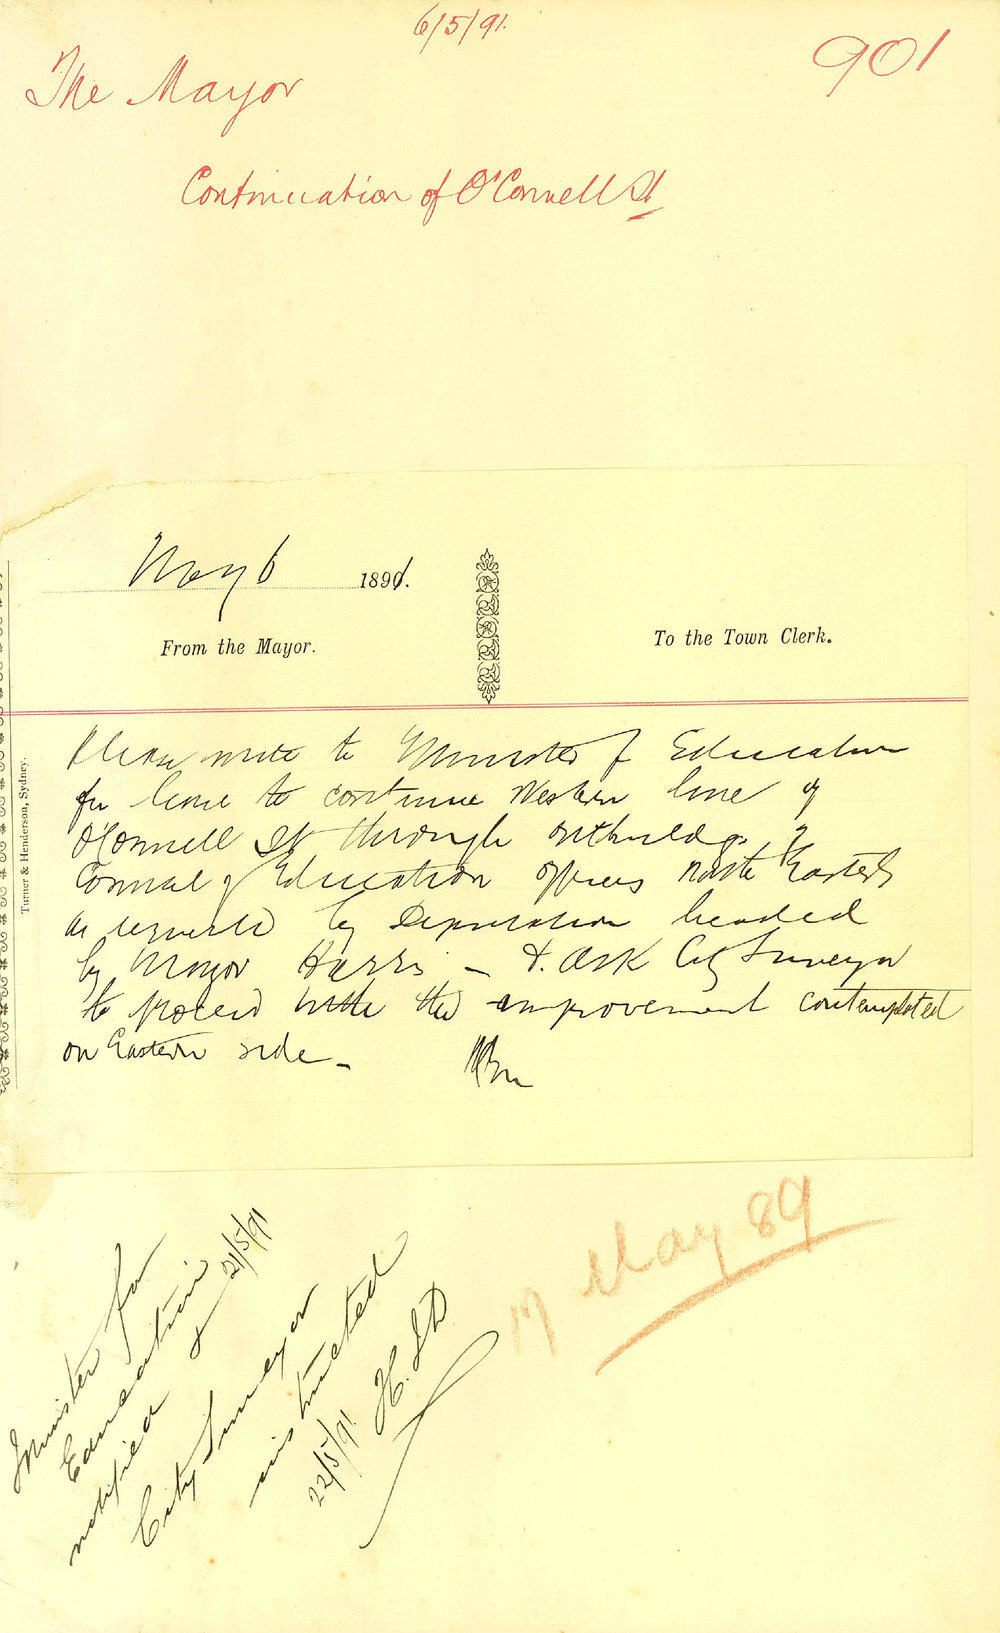 6/5/91.
901
The Mayor
Continuation of O'Connell St
May 6 1891.
From the Mayor.
To the Town Clerk.
Turner & Henderson, Sydney.
Please write to Minister of Education
for leave to continue Western line of
O'Connell St through outbuildgs of
Council of Education offices North Easterly
as requested by Deputation headed
by Mayor Harris - & ask City Surveyor
to proceed with the improvement contemplated
on Eastern side -
Minister for
Education
notified 21/5/91
&
City Surveyor
instructed
22/5/91. H.S.D
May 89